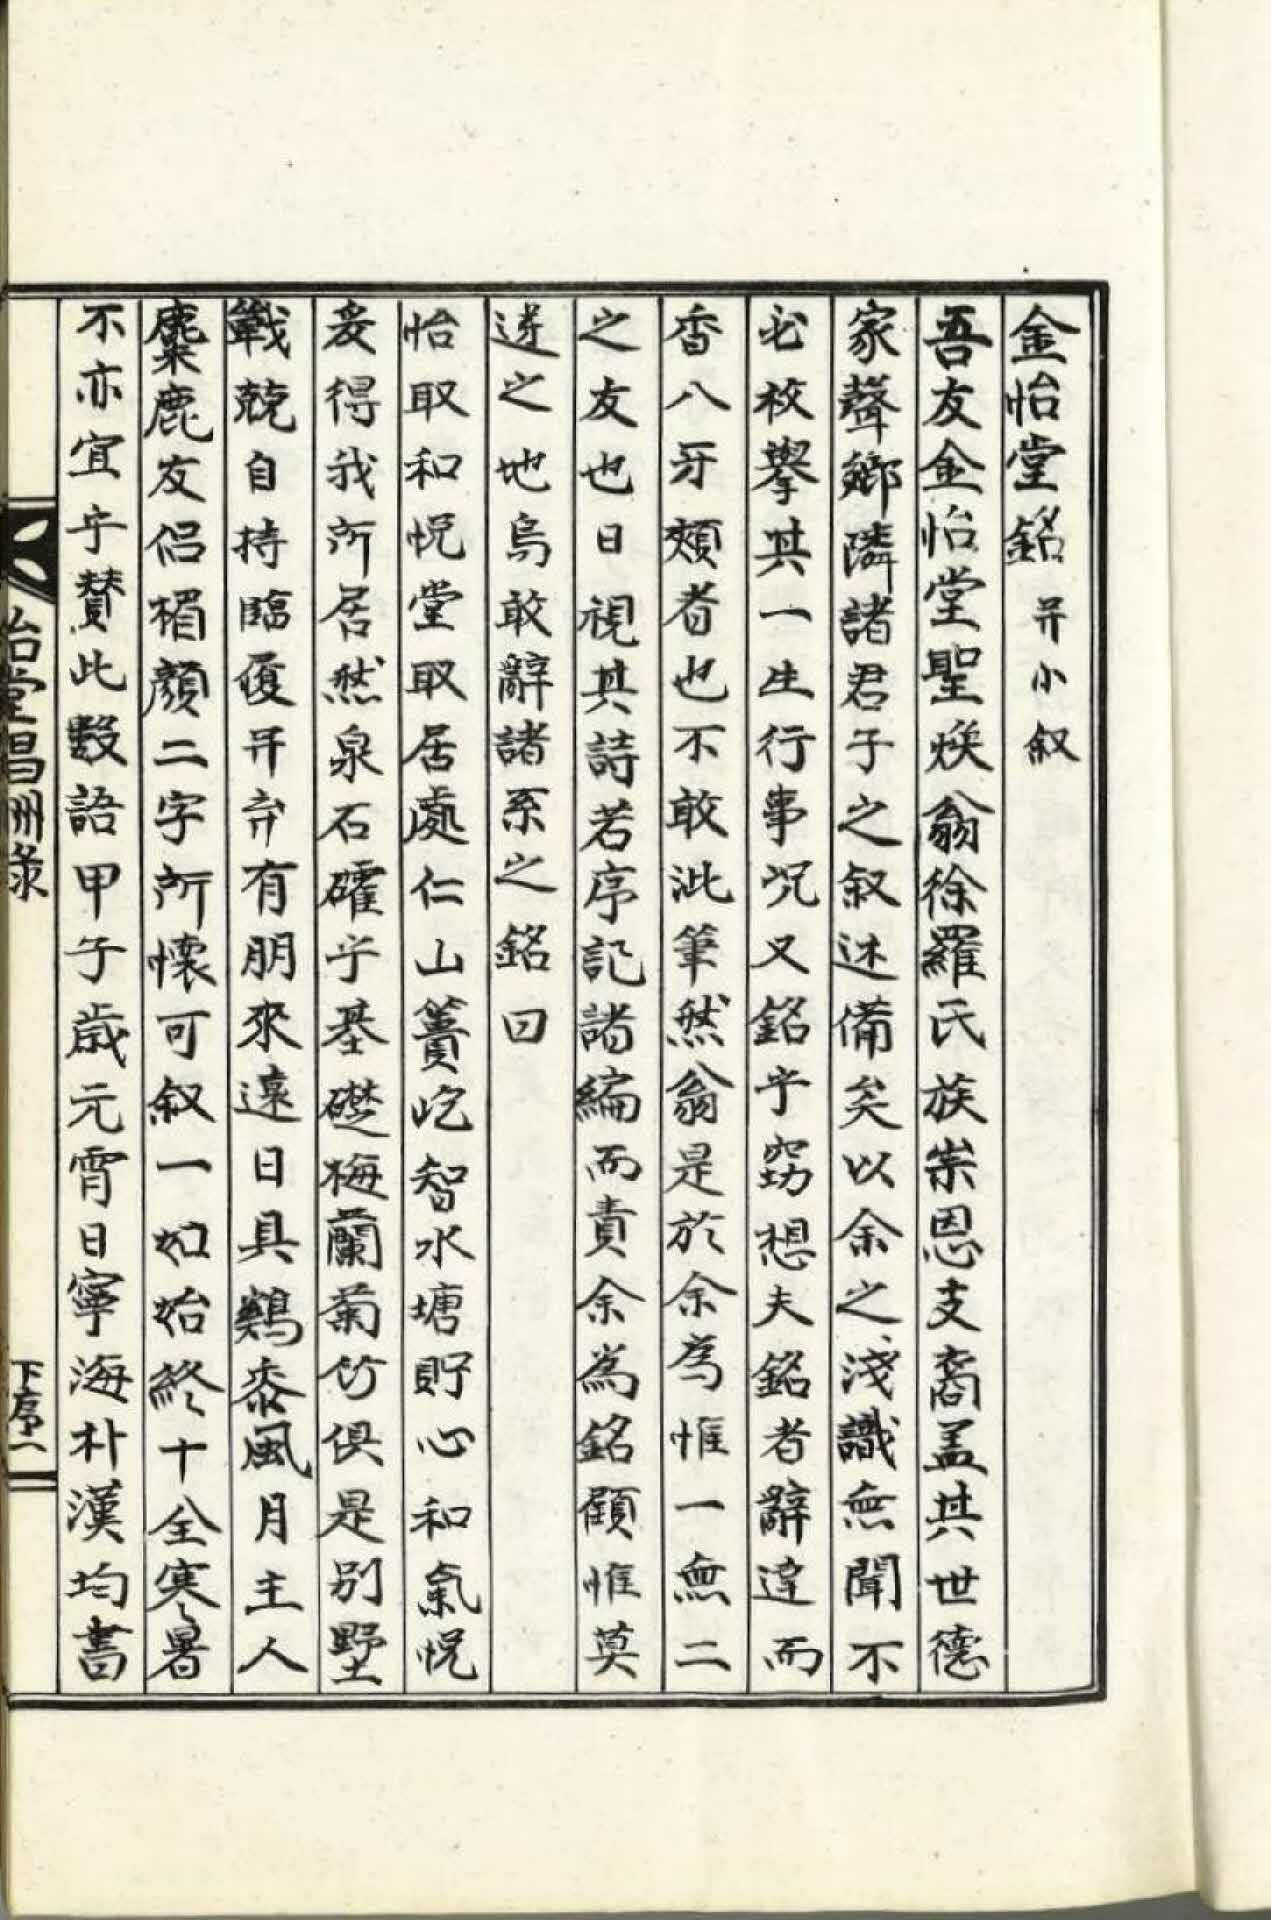 金怡堂銘 并小叙
吾友金怡堂聖煥翁徐羅氏族崇恩支裔盖其世德
家聲鄉隣諸君子之叙述備矣以余之淺識無聞不
必枚擧其一生行事况又銘乎窃想夫銘者辭達而
香八牙頰者也不敢泚筆然翁是於余爲惟一無二
之友也日視其詩若序記諸編而責余為銘顧惟莫
逆之地烏敢辭諸系之銘曰
怡取和悅堂取居處仁山簣屹智水塘貯心和氣悅
爰得我所居然泉石礭乎基礎梅蘭菊竹俱是別墅
戰兢自持臨履幷弆有朋來遠日具鷄黍風月主人
麋鹿友侣楣顔二字所懷可叙一如始終十全寒暑
不亦宜乎賛此數語甲子歲元宵日寧海朴漢均書
怡堂昌酬录
下序一